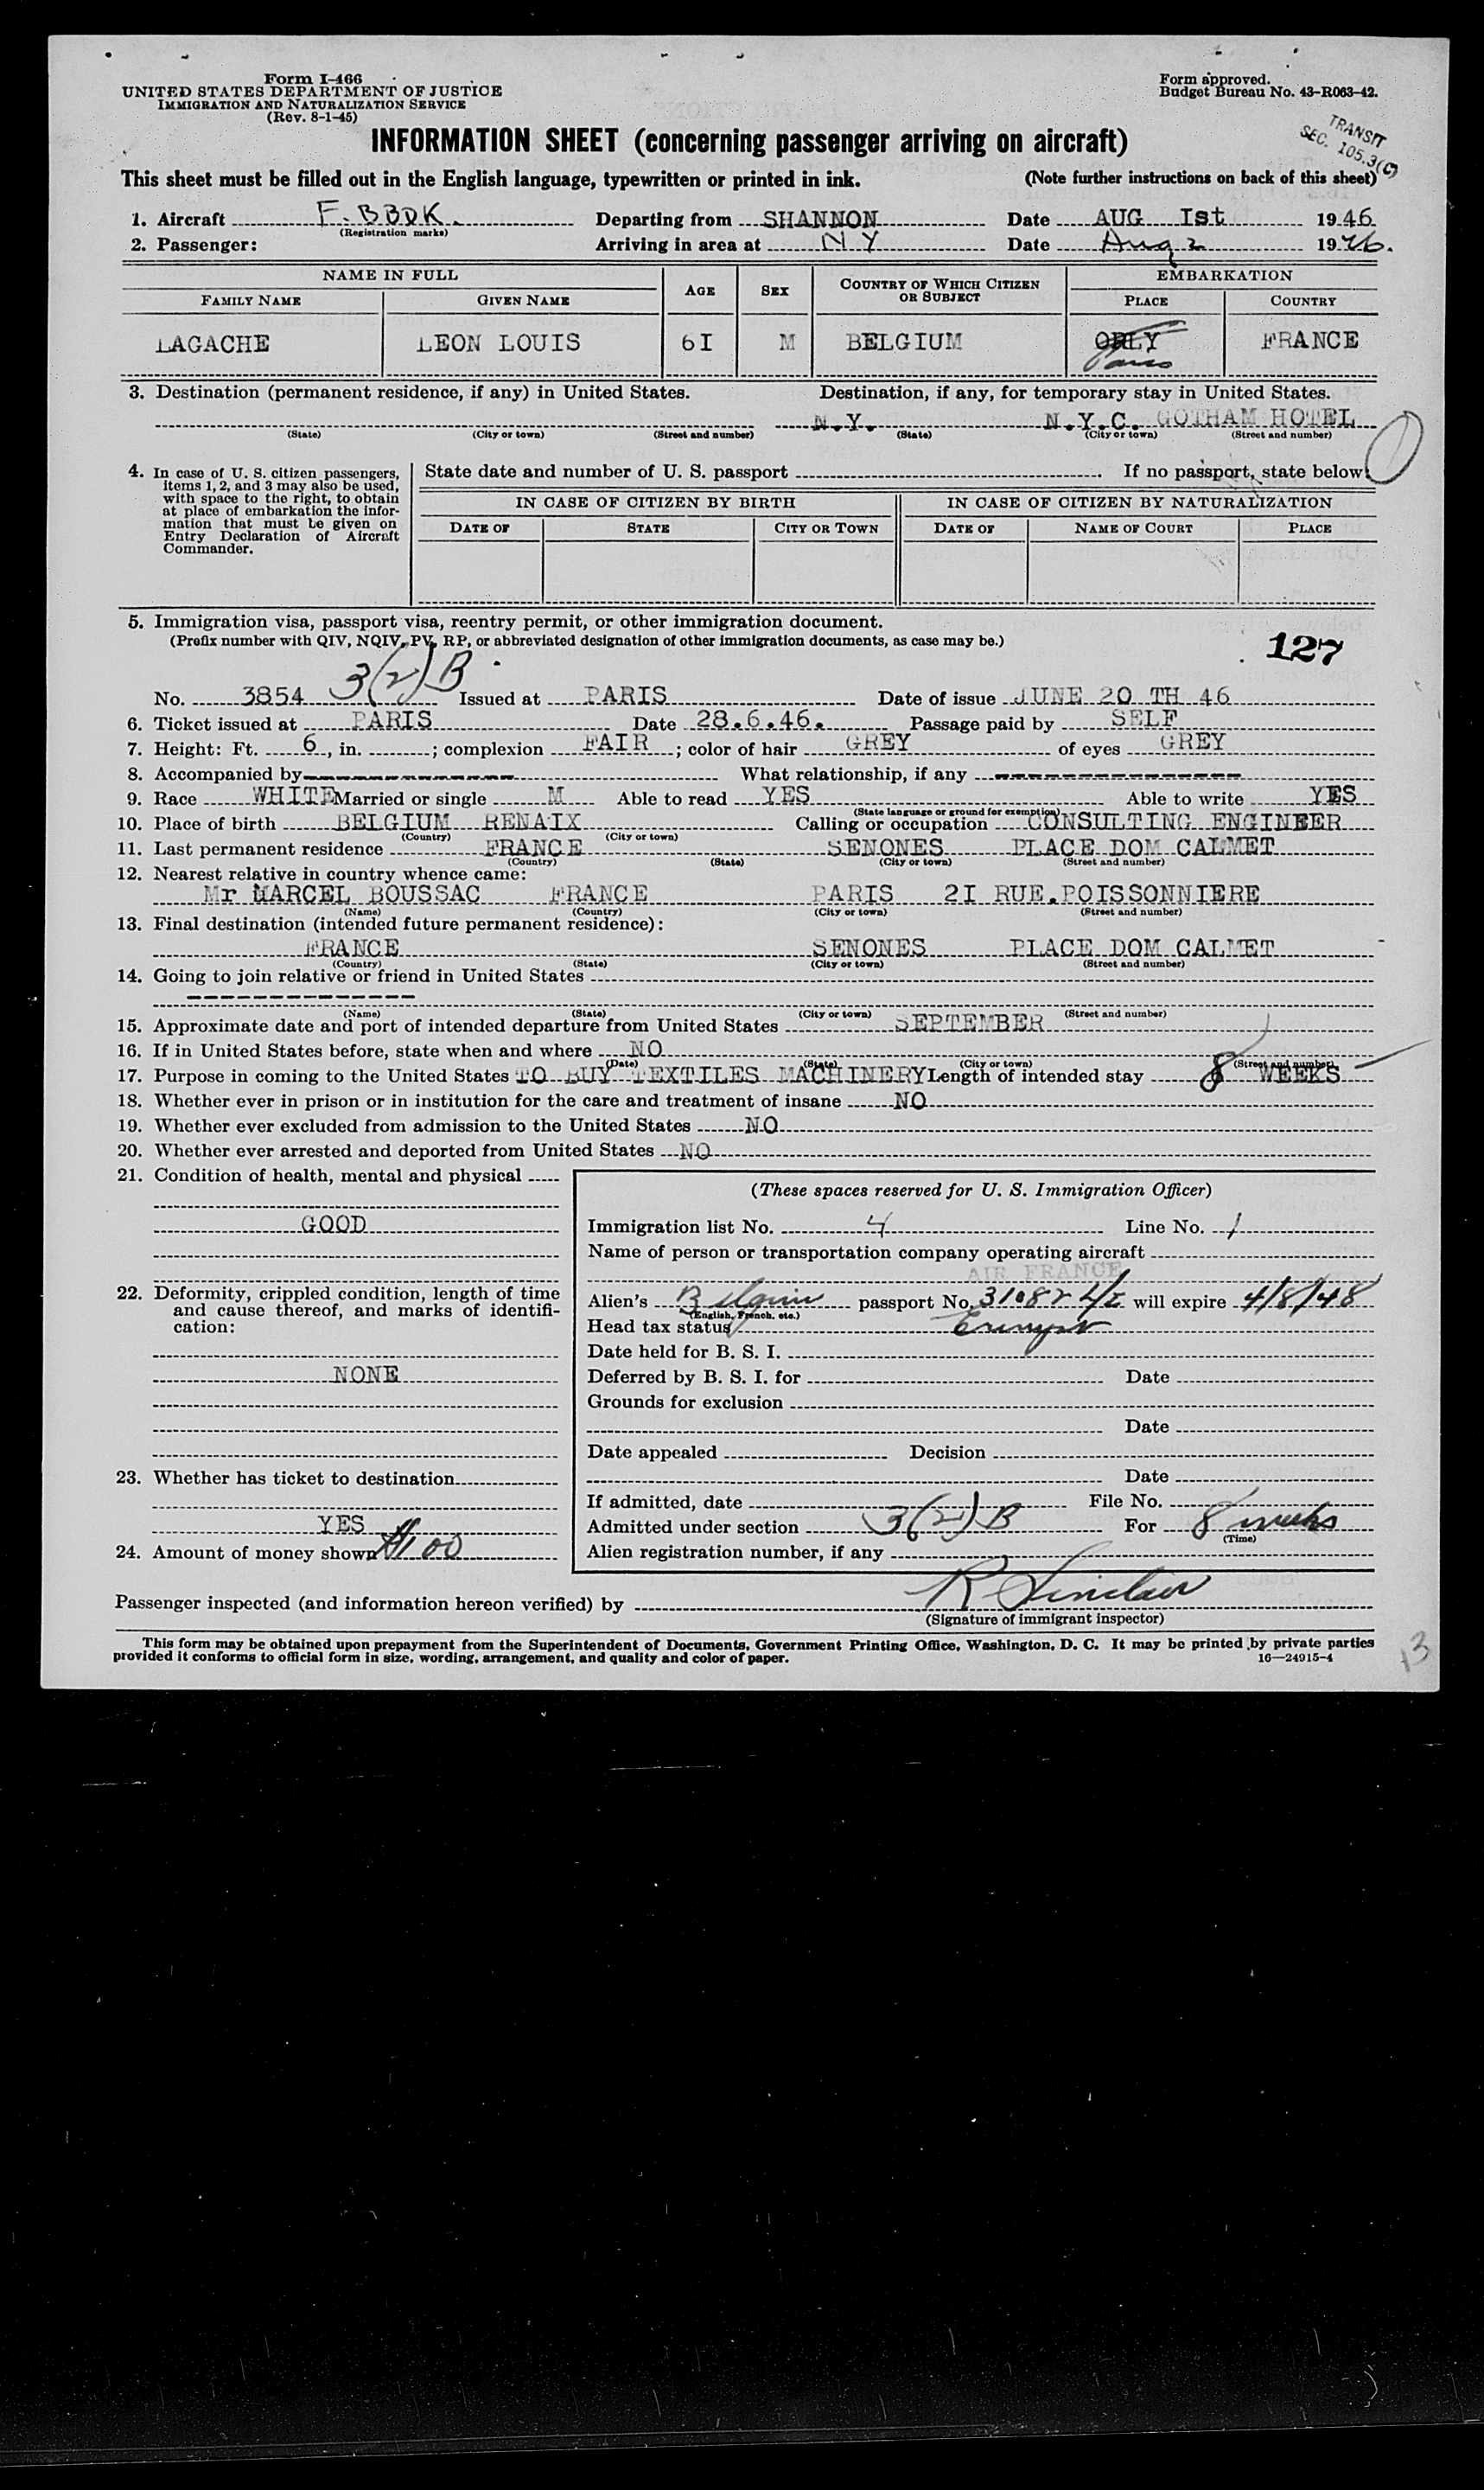 Form I-466
UNITED STATES DEPARTMENT OF JUSTICE
IMMIGRATION AND NATURALIZATION SERVICE
(Rev. 8-1-45)
Form approved.
Budget Bureau No. 43-R063-42.
INFORMATION SHEET (concerning passenger arriving on aircraft)
TRANSIT
SEC. 105.3(c)
This sheet must be filled out in the English language, typewritten or printed in ink. (Note further instructions on back of this sheet)
1. Aircraft F.BBDK. Departing from SHANNON Date AUG Ist 1946
(Registration marks)
2. Passenger: Arriving in area at NY Date Aug 2 1946.
NAME IN FULL AGE SEX COUNTRY OF WHICH CITIZEN OR SUBJECT EMBARKATION
FAMILY NAME GIVEN NAME PLACE COUNTRY
LAGACHE LEON LOUIS 6I M BELGIUM ORLY FRANCE
Paris
3. Destination (permanent residence, if any) in United States. Destination, if any, for temporary stay in United States.
N.Y. N.Y.C. GOTHAM HOTEL
(State) (City or town) (Street and number) (State) (City or town) (Street and number)
4. In case of U. S. citizen passengers, items 1, 2, and 3 may also be used, with space to the right, to obtain at place of embarkation the information that must be given on Entry Declaration of Aircraft Commander.
State date and number of U. S. passport If no passport, state below:
IN CASE OF CITIZEN BY BIRTH IN CASE OF CITIZEN BY NATURALIZATION
DATE OF STATE CITY OR TOWN DATE OF NAME OF COURT PLACE
5. Immigration visa, passport visa, reentry permit, or other immigration document.
(Prefix number with QIV, NQIV, PV, RP, or abbreviated designation of other immigration documents, as case may be.)
127
No. 3854 3(2)B Issued at PARIS Date of issue JUNE 20 TH 46
6. Ticket issued at PARIS Date 28.6.46. Passage paid by SELF
7. Height: Ft. 6, in. ; complexion FAIR ; color of hair GREY of eyes GREY
8. Accompanied by What relationship, if any
9. Race WHITE Married or single M Able to read YES Able to write YES
(State language or ground for exemption)
10. Place of birth BELGIUM RENAIX Calling or occupation CONSULTING ENGINEER
(Country) (City or town)
11. Last permanent residence FRANCE SENONES PLACE DOM CALMET
(Country) (State) (City or town) (Street and number)
12. Nearest relative in country whence came:
Mr MARCEL BOUSSAC FRANCE PARIS 2I RUE.POISSONNIERE
(Name) (Country) (City or town) (Street and number)
13. Final destination (intended future permanent residence):
FRANCE SENONES PLACE DOM CALMET
(Country) (State) (City or town) (Street and number)
14. Going to join relative or friend in United States
(Name) (State) (City or town) (Street and number)
15. Approximate date and port of intended departure from United States SEPTEMBER
16. If in United States before, state when and where NO
(Date) (State) (City or town) (Street and number)
17. Purpose in coming to the United States TO BUY TEXTILES MACHINERY Length of intended stay 8 WEEKS
18. Whether ever in prison or in institution for the care and treatment of insane NO
19. Whether ever excluded from admission to the United States NO
20. Whether ever arrested and deported from United States NO
21. Condition of health, mental and physical
GOOD
22. Deformity, crippled condition, length of time and cause thereof, and marks of identification:
NONE
23. Whether has ticket to destination
YES
24. Amount of money shown $100
(These spaces reserved for U. S. Immigration Officer)
Immigration list No. 4 Line No. 1
Name of person or transportation company operating aircraft
AIR FRANCE
Alien's Belgium passport No. will expire 4/8/48
(English, French, etc.)
Head tax status Exempt
Date held for B. S. I.
Deferred by B. S. I. for Date
Grounds for exclusion
Date
Date appealed Decision
Date
If admitted, date File No.
Admitted under section 3(2)B For 8 weeks
(Time)
Alien registration number, if any
Passenger inspected (and information hereon verified) by R Sinclair
(Signature of immigrant inspector)
This form may be obtained upon prepayment from the Superintendent of Documents, Government Printing Office, Washington, D. C. It may be printed by private parties
provided it conforms to official form in size, wording, arrangement, and quality and color of paper. 16—24915-4
13